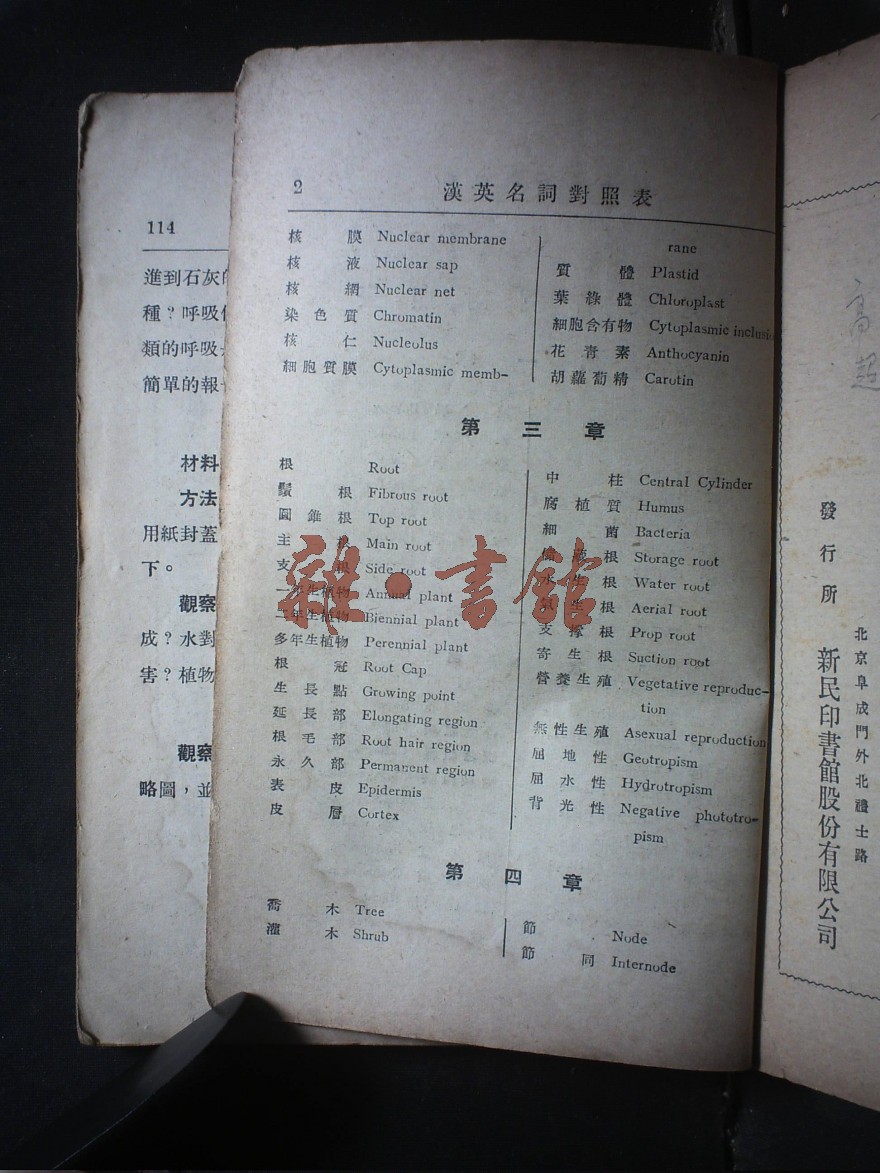 114
進到石灰的
種?呼吸
類的呼吸
簡單的報
材料
方法
用紙封蓋
下。
觀察
成?水對
害?植物
觀察
略圖,並
2 漢英名詞對照表
核膜 Nuclear membrane
核液 Nuclear sap
核網 Nuclear net
染色質 Chromatin
核仁 Nucleolus
細胞質膜 Cytoplasmic memb-
rane
質體 Plastid
葉綠體 Chloroplast
細胞含有物 Cytoplasmic inclusi
花青素 Anthocyanin
胡蘿蔔精 Carotin
第三章
根 Root
鬚根 Fibrous root
圓錐根 Top root
主根 Main root
支根 Side root
一年生植物 Annual plant
二年生植物 Biennial plant
多年生植物 Perennial plant
根冠 Root Cap
生長點 Growing point
延長部 Elongating region
根毛部 Root hair region
永久部 Permanent region
表皮 Epidermis
皮層 Cortex
中柱 Central Cylinder
腐植質 Humus
細菌 Bacteria
根 Storage root
水生根 Water root
氣生根 Aerial root
支撐根 Prop root
寄生根 Suction root
營養生殖 Vegetative reproduc-
tion
無性生殖 Asexual reproduction
屈地性 Geotropism
屈水性 Hydrotropism
背光性 Negative phototro-
pism
第四章
喬木 Tree
灌木 Shrub
節 Node
節間 Internode
雜·書館
高超
發行所 新民印書館股份有限公司
北京阜成門外北禮士路